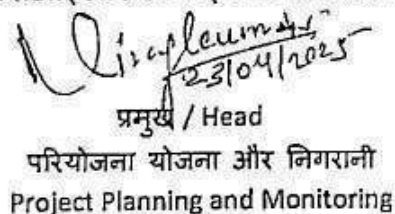 23/04/2025
प्रमुख / Head
परियोजना योजना और निगरानी
Project Planning and Monitoring